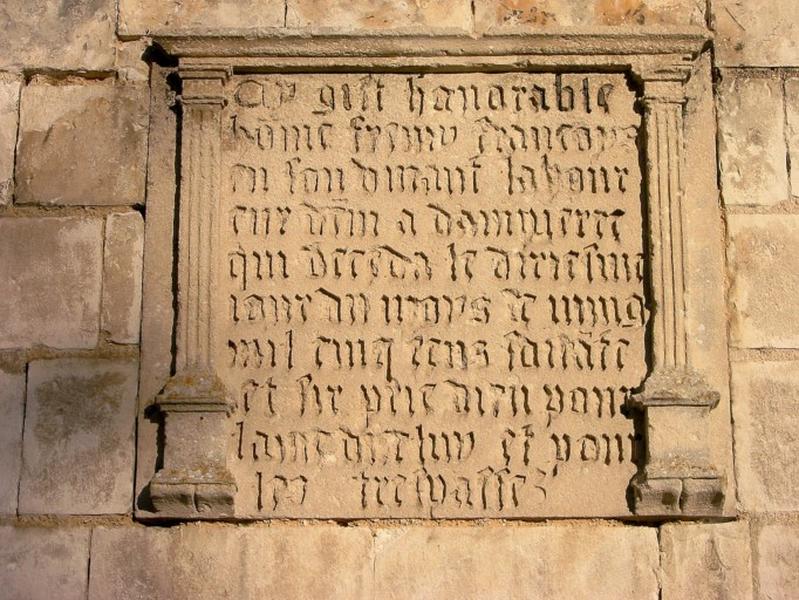 Cy gist honorable
hōme fremy francoys
en son vivant labour
eur dem a dampierre
qui deceda le dixiesme
iour du moys de iuing
mil cinq cens soixāte
et six pries dieu pour
lame de luy et pour
les trespasses